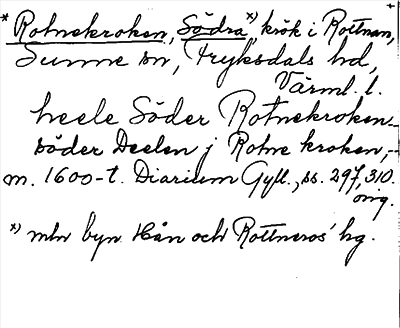 * Rotnekroken, Södra *), krök i Rottnan,
Sunne sn, Fryksdals hd,
Värml. l.
heele Söder Rotnekroken_
söder Deelen j Rotne kroken,-
m. 1600-t. Diarium Gyll., ss. 297, 310.
orig.
*) mln byn Hån och Rottneros' hg.